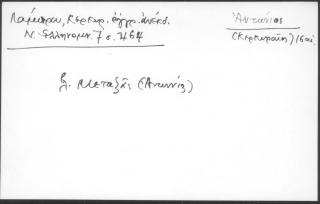 Λάμπρου, Κερκυρ. έγγρ. ἀνέκδ.
Ν. Ἑλληνομν. 7 σ. 464
Ἀντώνιος
(Κερκυραῖος) 16 αἰ.
βλ. Μεταξᾶς (Ἀντώνιος)